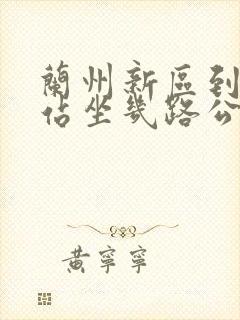 蘭州新區到
佔坐幾路公
黃寧寧